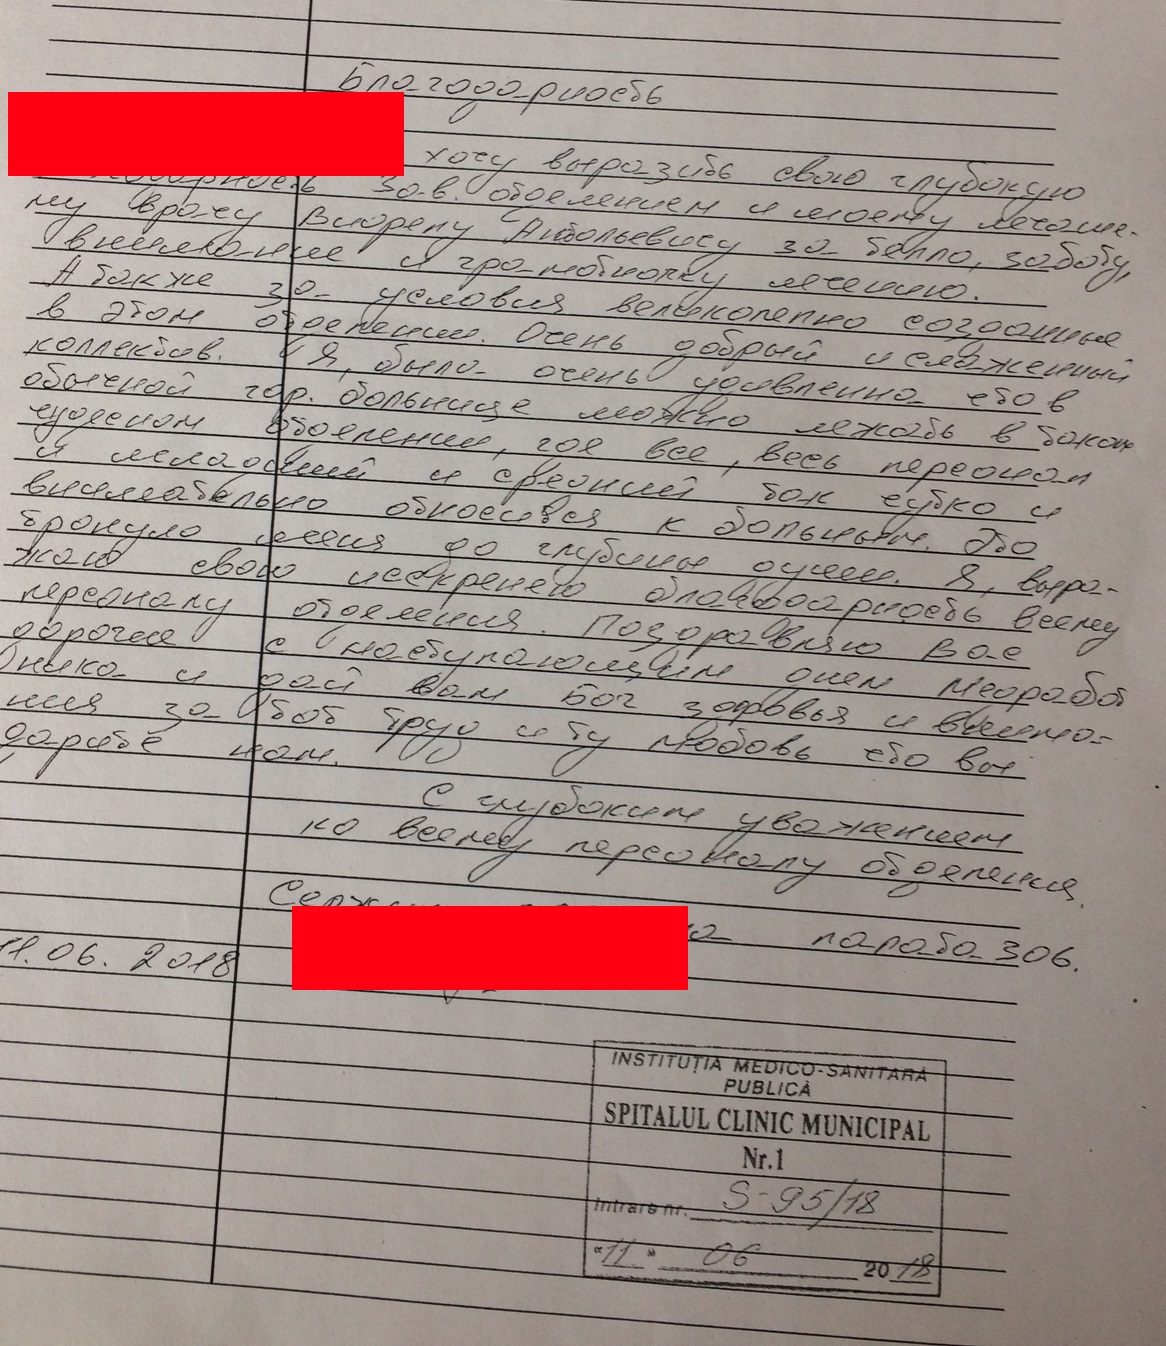 Благодарность
хочу выразить свою глубокую
зав. отделением и моему лечаще-
му врачу Анатольевичу за тепло, заботу,
внимание и грамотному лечению.
А также за условия великолепно созданные
в этом отделении. Очень добрый и слаженный
коллектив. Я, была очень удивленна что в
обычной гор. больнице можно лежать в таком
чудесном отделении, где все, весь персонал
и младший и средний так чутко и
внимательно относится к больным. Это
тронуло меня до глубины души. Я, выра-
жаю свою искренею благодарность всему
персоналу отделения. Поздравляю Вас
дорогие с наступающим днем медработ
ника и дай вам Бог здоровья и внима-
ния за тот труд и ту любовь что вы
дарите нам.
С глубоким уважением
ко всему персоналу отделения.
палата 306.
11.06.2018
INSTITUȚIA MEDICO-SANITARĂ
PUBLICĂ
SPITALUL CLINIC MUNICIPAL
Nr.1
Intrare nr. S-95/18
"11" 06 2018